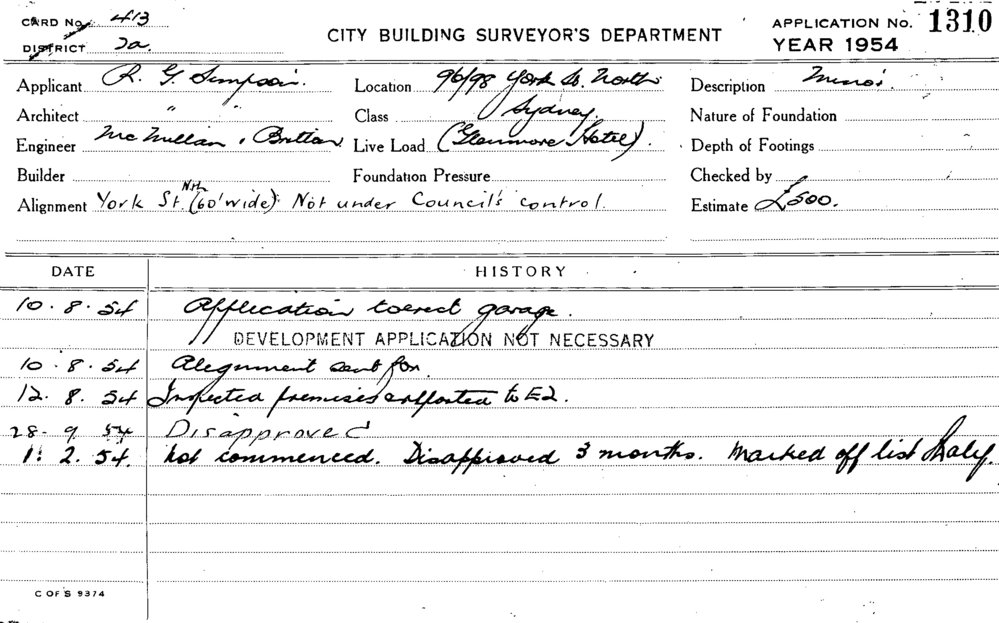 CARD No. 413
DISTRICT 2a
CITY BUILDING SURVEYOR'S DEPARTMENT
APPLICATION No. 1310
YEAR 1954
Applicant R. G. Simpson.
Location 96/98 York St. North
Description Minor.
Architect " "
Class Sydney.
Nature of Foundation
Engineer McMillan, Britton
Live Load (Glenmore Hotel).
Depth of Footings
Builder
Foundation Pressure
Checked by
Alignment York St. Nth (60' wide). Not under Council's control.
Estimate £500.
DATE HISTORY
10. 8. 54 Application to erect garage.
DEVELOPMENT APPLICATION NOT NECESSARY
10. 8. 54 Alegnment sent for.
12. 8. 54 Inspected premises & reported to E2.
28- 9 54 Disapproved
1. 2. 54. Not commenced. Disapproved 3 months. Marked off list
C OF S 9374